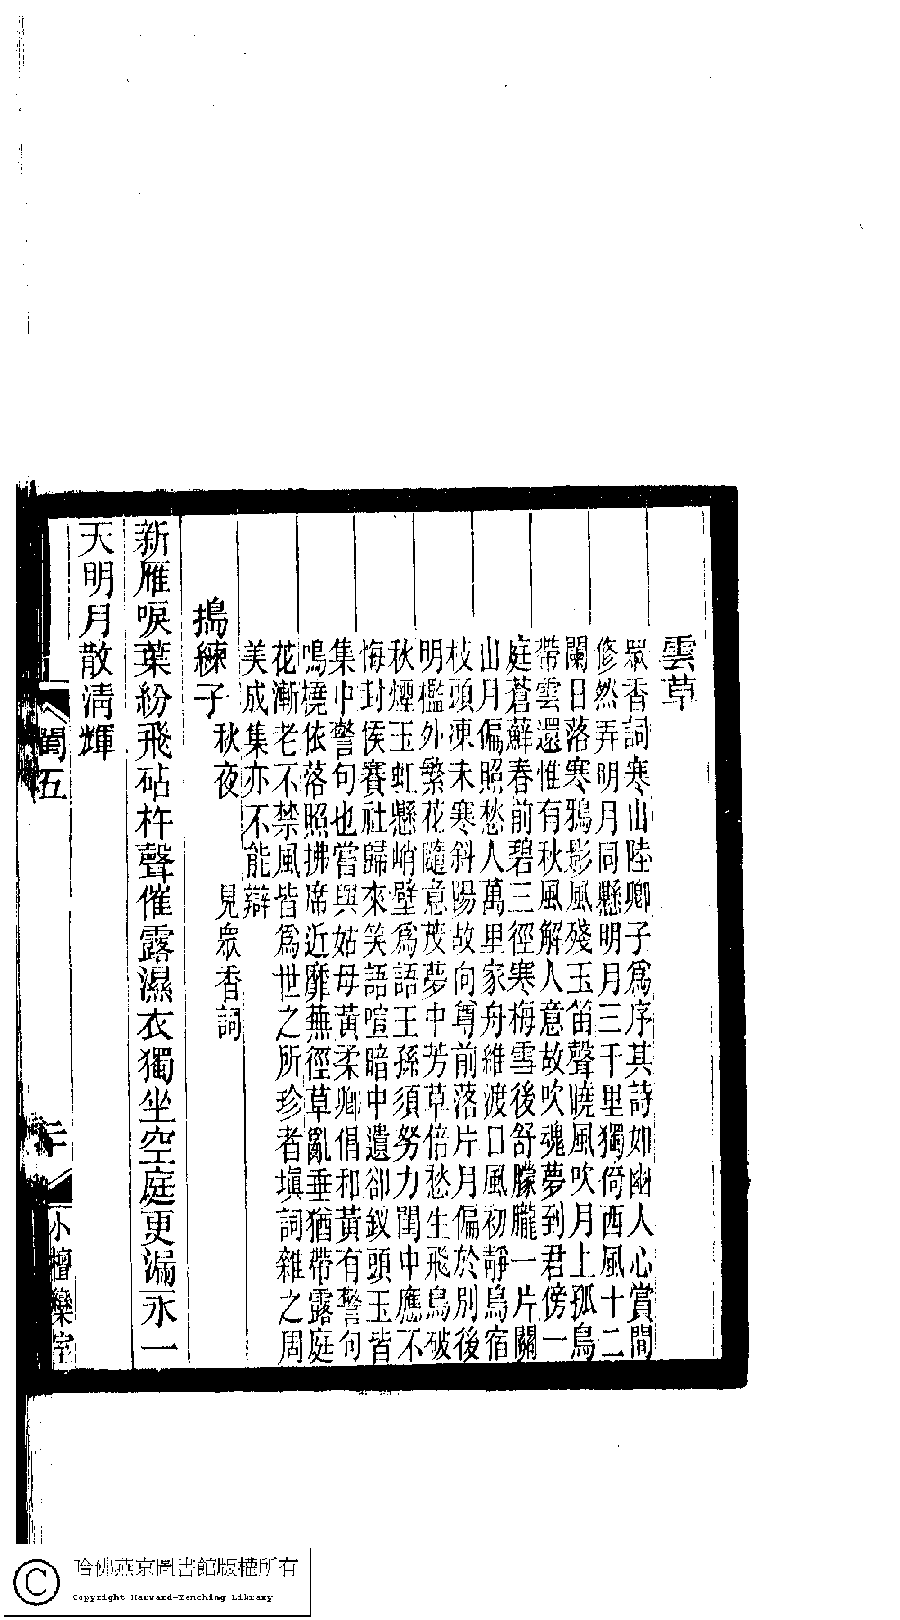 雲草
眾香詞寒山陸卿子為序其詩如幽人心賞間
修然弄明月同懸明月三千里獨倚西風十二
闌日落寒鴉影風殘玉笛聲曉風吹月上孤鳥
帶雲還惟有秋風解人意故吹魂夢到君傍一
庭蒼蘚春前碧三徑寒梅雪後舒朦朧一片關
山月偏照愁人萬里家舟維渡口風初靜鳥宿
枝頭凍未寒斜陽故向尊前落片月偏於別後
明檻外繁花隨意茂夢中芳草倍愁生飛鳥破
秋煙玉虹懸峭壁為語王孫須努力閨中應不
悔封侯賽社歸來笑語喧暗中遺卻釵頭玉皆
集中警句也嘗與姑母黃柔卿倡和黃有警句
鳴橈依落照拂席近蘼蕪徑草亂垂猶帶露庭
花漸老不禁風皆為世之所珍者塡詞雜之周
美成集亦不能辯
搗練子 秋夜 見眾香詞
新雁唳葉紛飛砧杵聲催露濕衣獨坐空庭更漏永一
天明月散淸輝
閨五
二
小檀欒室
哈佛燕京圖書館版權所有
Copyright Harvard-Yenching Library